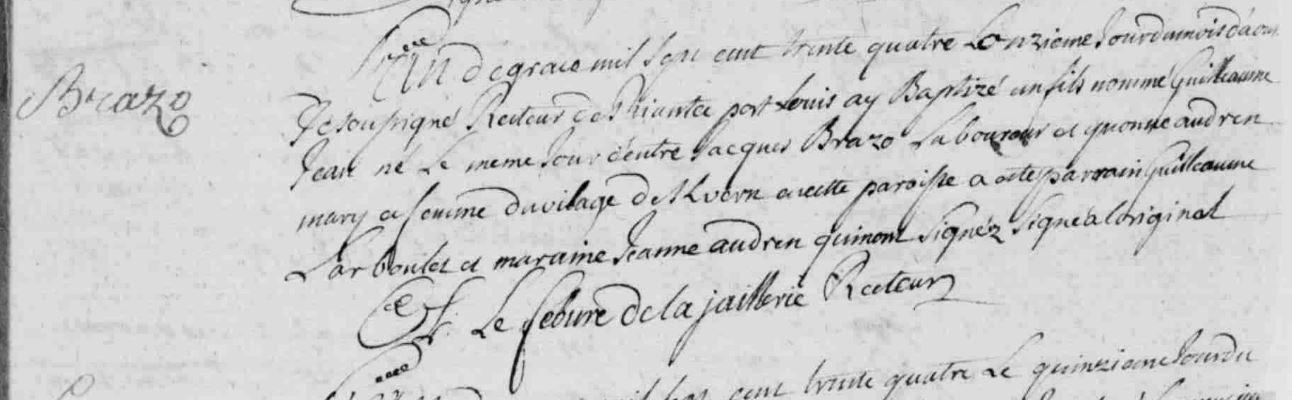 Brazo
L'An de grace mil sept cent trente quatre Lonzieme Jour du mois d'aous
Je soussigné Recteur de Rianta port Louis ay Baptizé un fils nommé Guilleaume
Jean né Le meme Jour d'entre Jacques Brazo Laboureur et yvonne audren
mary et femme du vilage de Kvern en cette paroisse a eté parrain Guilleaume
Larboulet et maraine Jeanne audren qui n'ont signéz signé a loriginal
Le febure de la jaillerie Recteur
cent trente quatre Le quinzieme Jour du